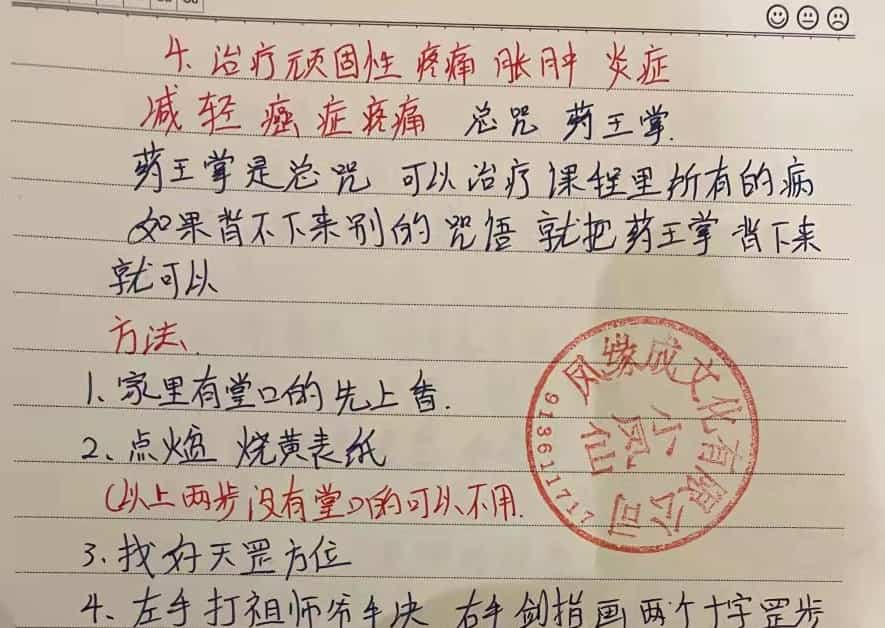 4. 治疗顽固性 疼痛 胀肿 炎症
减轻 癌症疼痛 总咒 药王掌.
药王掌是总咒 可以治疗 课程里所有的病
如果背不下来别的 咒语 就把药王掌 背下来
就可以
方法、
1、家里有堂口的 先上香.
2、点烟 烧黄表纸
(以上两步没有堂口的可以不用.
3、找好天罡方位
4、左手打祖师爷手决 右手剑指画两个十字罡步
凤缘成文化有限公司
小凤仙
913611717